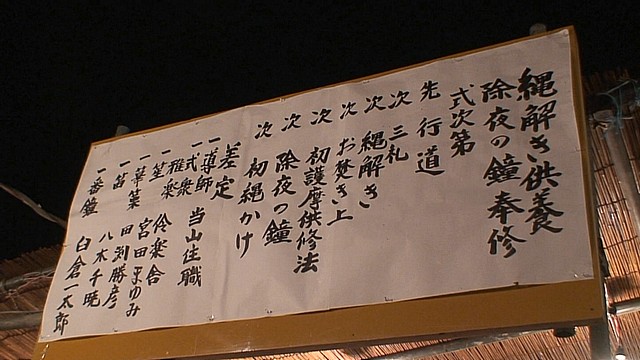 縄解き供養
除夜の鐘奉修
式次第
先 行道
次 三礼
次 縄解き
次 お焚き上
次 初護摩供修法
次 除夜の鐘
次 初縄かけ
差定
一 導師 当山住職
一 式衆
一 雅楽 伶楽舎
一 笙 宮田まゆみ
一 篳篥 田渕勝彦
一 笛 八木千暁
一 一番鐘 白倉一太郎